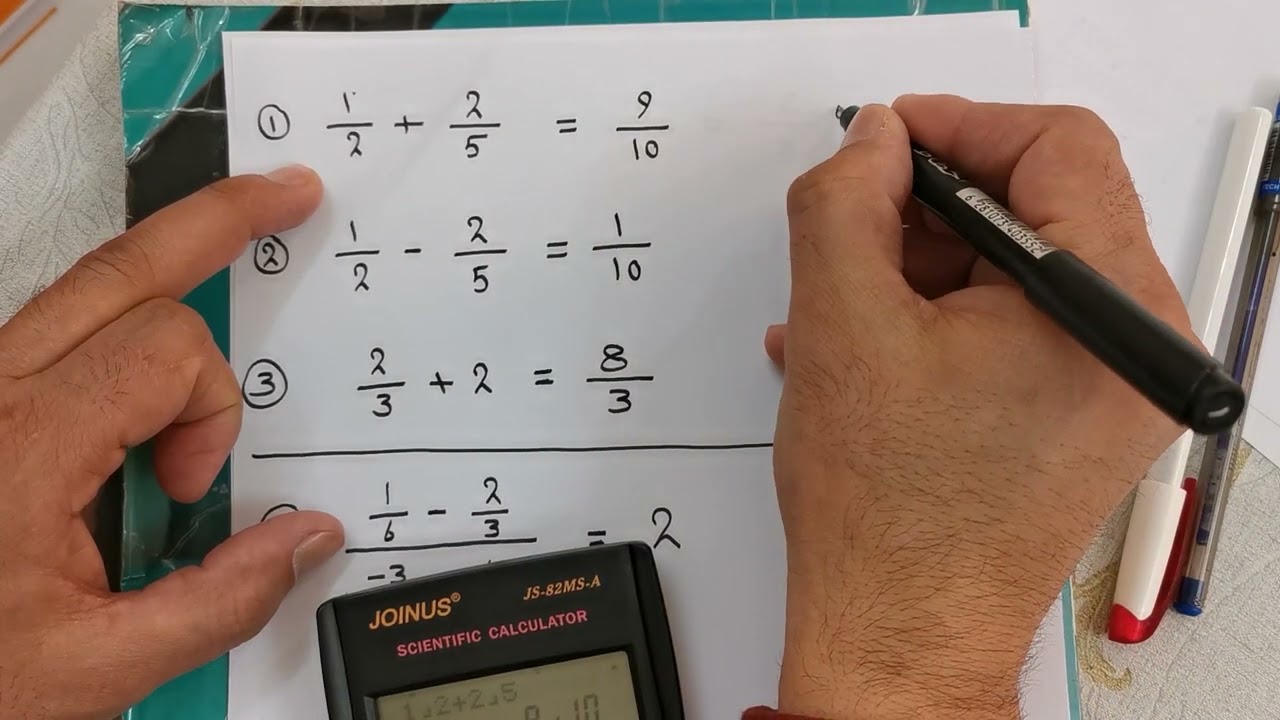 ① 1/2 + 2/5 = 9/10
② 1/2 - 2/5 = 1/10
③ 2/3 + 2 = 8/3
1/6 - 2/3 = 2
-3
JOINUS® JS-82MS-A
SCIENTIFIC CALCULATOR
1⌟2+2⌟5
9⌟10
TECH